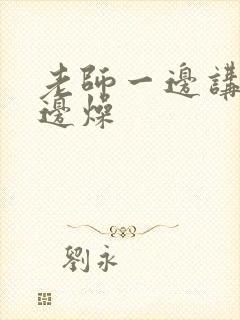 老師一邊講
邊燥
劉永